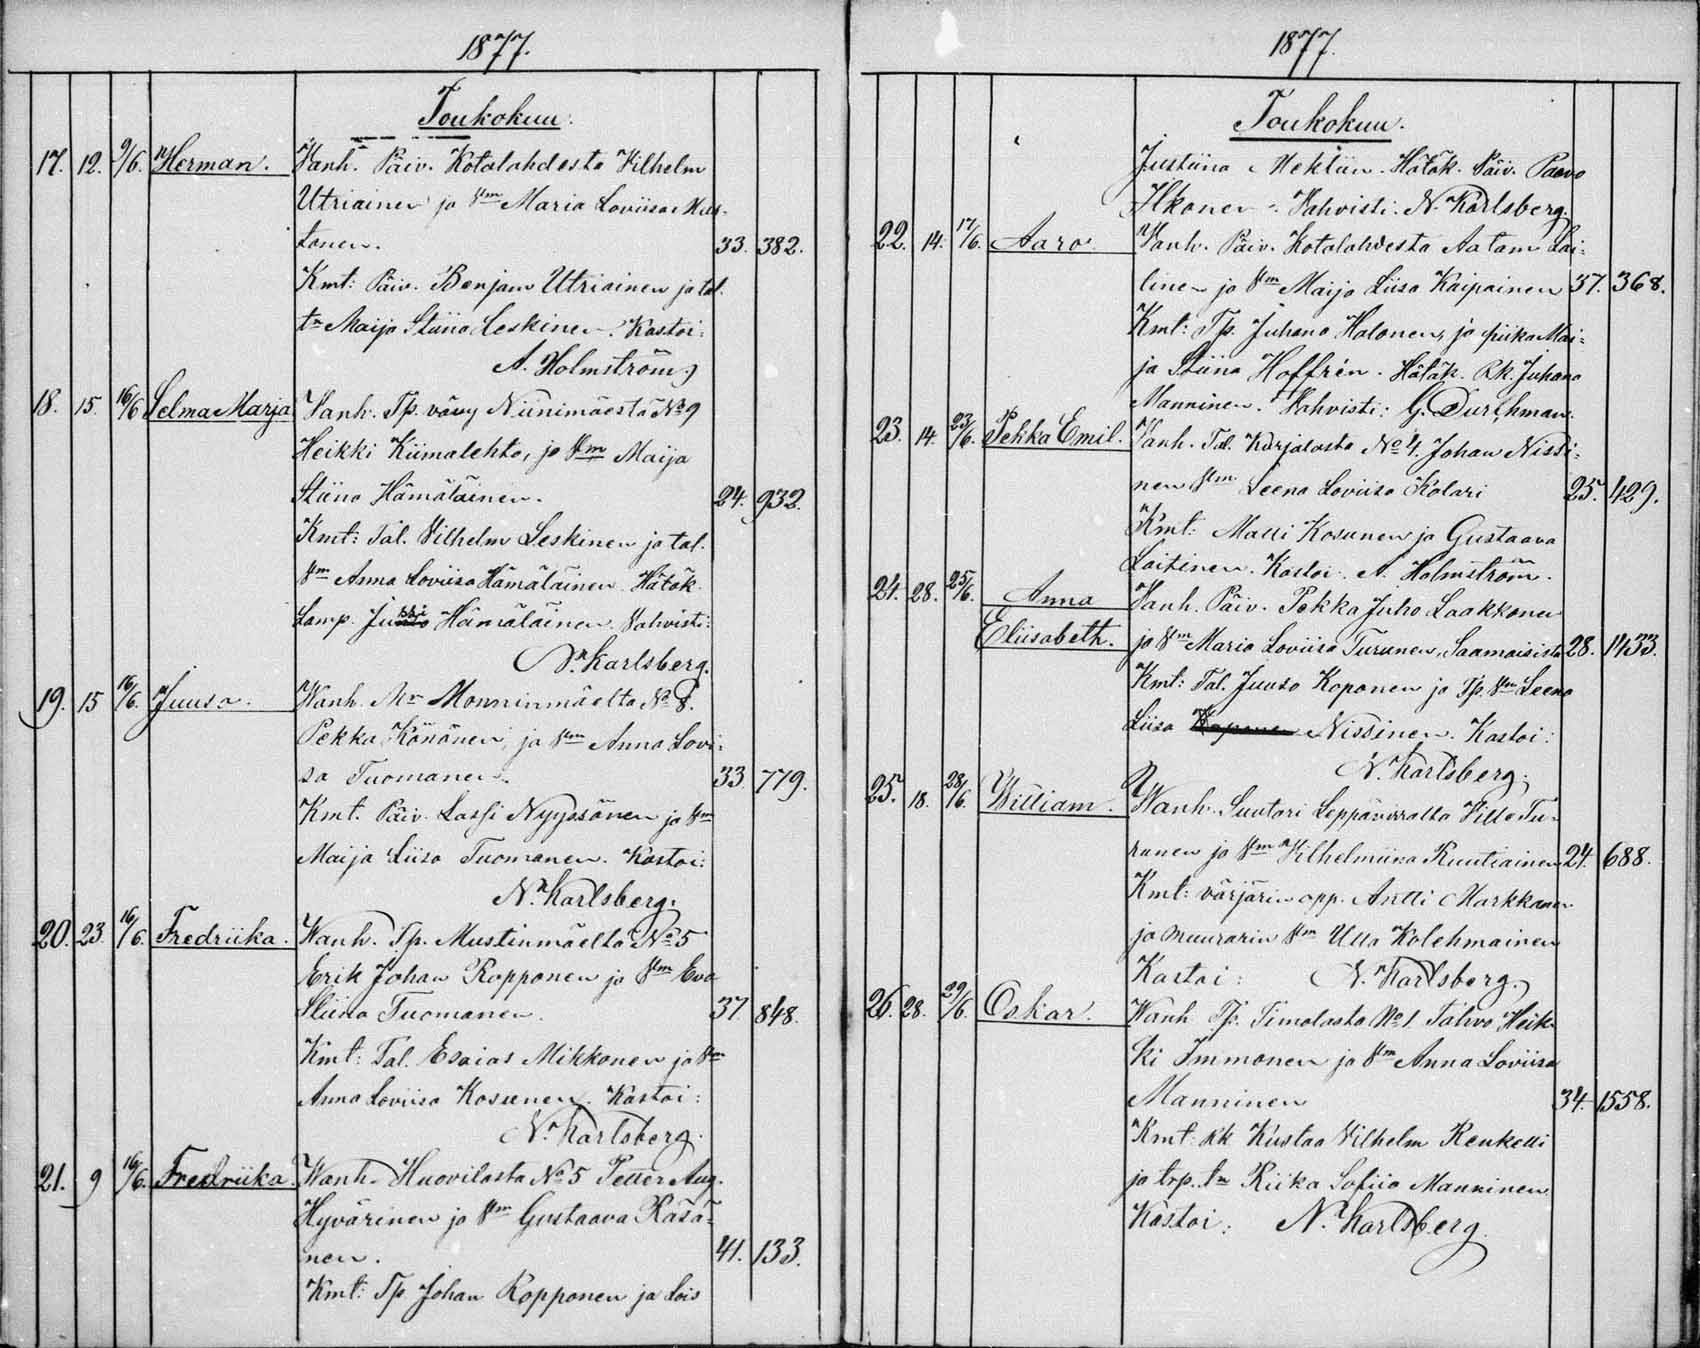 1877.
Toukokuu.
17. 12. 9/6. Herman. Vanh. Päiv. Kotalahdesta Vilhelm
Utriainen ja Vm Maria Loviisa Mus-
tonen. 33. 382.
Kmt: Päiv. Benjam Utriainen ja tal.
tr Maija Stiina Leskinen. Kastoi:
A. Holmström.
18. 15. 16/6 Selma Marja Vanh. Tp. vävy Niinimäestä No 9
Heikki Kiimalehto, ja Vm Maija
Stiina Hämäläinen. 24. 932.
Kmt: Tal. Vilhelm Leskinen ja tal.
Vm Anna Loviisa Hämäläinen. Hätäk.
Lamp. Jussi Hämäläinen. Vahvisti:
N. Karlsberg.
19. 15 16/6. Juuso. Wanh. Mr Monninmäeltä No 8.
Pekka Könönen, ja Vm Anna Lovi-
sa Tuomanen. 33. 779.
Kmt. Päiv. Lassi Nyyssönen ja Vm
Maija Liisa Tuomanen. Kastoi:
N. Karlsberg.
20. 23 16/6. Fredriika. Wanh. Tp. Mustinmäeltä No 5
Erik Johan Ropponen ja Vm Eva
Stiina Tuomanen. 37 848.
Kmt: Tal. Esaias Mikkonen ja Vm
Anna Loviisa Kosunen. Kastoi:
N. Karlsberg.
21. 9 16/6. Fredriika. Wanh. Huovilasta No 5 Petter Aug.
Hyvärinen ja Vm Gustaava Räsä-
nen. 41. 133.
Kmt: Tp. Johan Ropponen ja Lois
1877.
Toukokuu.
Justiina Mektiin. Hätäk. Päiv. Paavo
Ikonen. Vahvisti. N. Karlsberg.
22. 14. 17/6. Aaro. Vanh. Päiv. Kotalahdesta Aatam Lai-
tinen ja Vm Maija Liisa Kaipainen 37. 368.
Kmt: Tp. Juhana Halonen, ja piika Mai-
ja Stiina Hoffrén. Hätäk. Rk. Juhana
Manninen. Vahvisti: G. Durchman.
23. 14. 23/6. Pekka Emil. Vanh. Tal. Karjalasta No 4. Johan Nissi-
nen Vm Leena Loviisa Kolari 25. 429.
Kmt: Matti Kosunen ja Gustaava
Laitinen. Kastoi. A. Holmström.
24. 28. 25/6. Anna Vanh. Päiv. Pekka Juho Laakkonen
Eliisabeth. ja Vm Maria Loviisa Turunen, Saamaisista 28. 1433.
Kmt: Tal. Juuso Koponen ja Tp. Vm Leena
Liisa Koponen Nissinen. Kastoi:
N. Karlsberg.
25. 18. 28/6. William. Wanh. Suutari Leppävirralta Ville Tu-
runen ja Vm Vilhelmiina Ruutiainen 24. 688.
Kmt: värjärin opp. Antti Markkanen
ja muurarin Vm Ulla Kolehmainen
Kastoi: N. Karlsberg.
26. 28. 29/6. Oskar. Wanh. Tp. Timolasta No 1. Tahvo Heik-
ki Immonen ja Vm Anna Loviisa
Manninen 34. 1558.
Kmt: Rk Kustaa Vilhelm Renkelli
ja trp. tr Riika Sofiia Manninen.
Kastoi: N. Karlsberg.